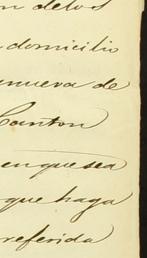 n delos
domicilio
nueva de
Canton
en que sea
que haga
referida